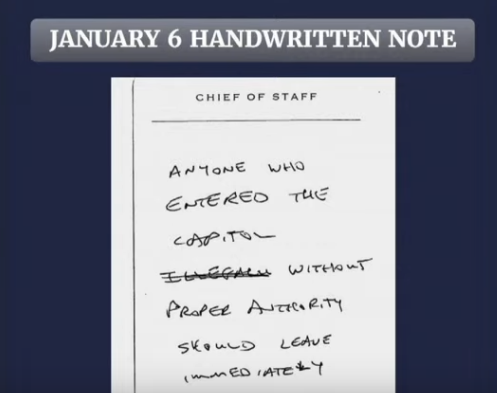 JANUARY 6 HANDWRITTEN NOTE
CHIEF OF STAFF
ANYONE WHO
ENTERED THE
CAPITOL
ILLEGALLY WITHOUT
PROPER AUTHORITY
SHOULD LEAVE
IMMEDIATELY